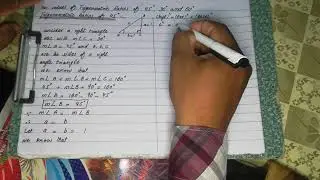 The values of Trigonometric Ratios of 45°, 30° and 60°
Trigonometric Ratios of 45°
consider a right triangle
ABC with m∠C = 90°
m∠A = 45° and
be sides of a right
angle triangle
we know that
m∠A + m∠B + m∠C = 180°
45° + m∠B + 90° = 180°
m∠B = 180° - 90° - 45°
m∠B = 45°
∵ m∠A = m∠B
∴ a = b
Let a = b = 1
we know that